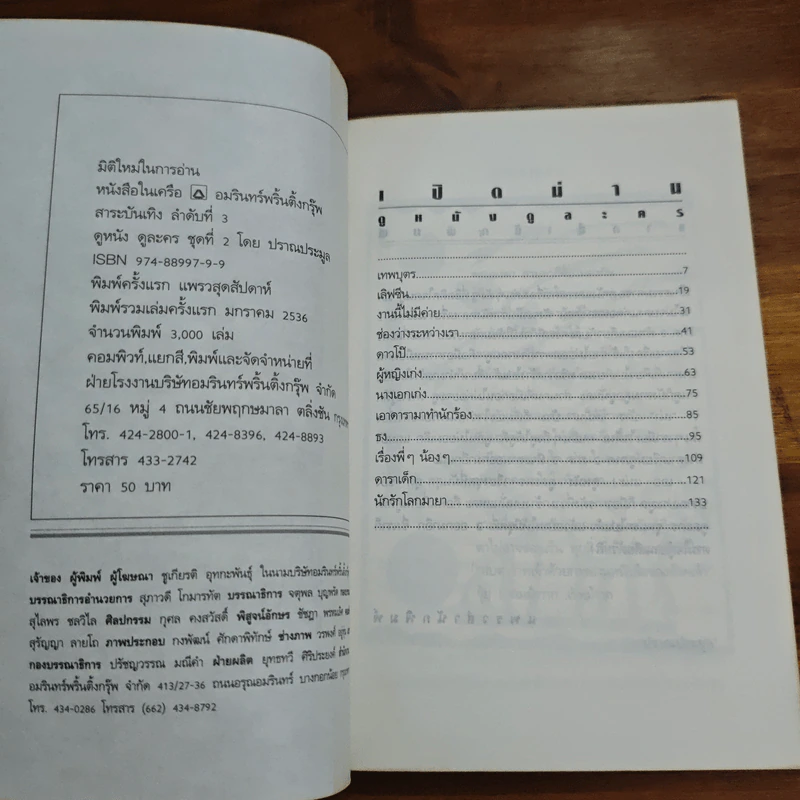 มิติใหม่ในการอ่าน
หนังสือในเครือ อมรินทร์พริ้นติ้งกรุ๊พ
สาระบันเทิง ลำดับที่ 3
ดูหนัง ดูละคร ชุดที่ 2 โดย ปราณประมูล
ISBN 974-88997-9-9
พิมพ์ครั้งแรก แพรวสุดสัปดาห์
พิมพ์รวมเล่มครั้งแรก มกราคม 2536
จำนวนพิมพ์ 3,000 เล่ม
คอมพิวท์,แยกสี,พิมพ์และจัดจำหน่ายที่
ฝ่ายโรงงานบริษัทอมรินทร์พริ้นติ้งกรุ๊พ จำกัด
65/16 หมู่ 4 ถนนชัยพฤกษมาลา ตลิ่งชัน
โทร. 424-2800-1, 424-8396, 424-8893
โทรสาร 433-2742
ราคา 50 บาท
เจ้าของ ผู้พิมพ์ ผู้โฆษณา ชูเกียรติ อุทกะพันธุ์ ในนามบริษัทอมรินทร์พริ้นติ้ง
บรรณาธิการอำนวยการ สุภาวดี โกมารทัต บรรณาธิการ จตุพล บุญพรัด
สุไลพร ชลวิไล ศิลปกรรม กุศล คงสวัสดิ์ พิสูจน์อักษร ชัชฎา
สุรัญญา ลายโถ ภาพประกอบ กงพัฒน์ ศักดาพิทักษ์ ช่างภาพ วรพงศ์
กองบรรณาธิการ ปรัชญวรรณ มณีคำ ฝ่ายผลิต ยุทธทวี ศิริประยงค์
อมรินทร์พริ้นติ้งกรุ๊พ จำกัด 413/27-36 ถนนอรุณอมรินทร์ บางกอกน้อย
โทร. 434-0286 โทรสาร (662) 434-8792
เปิดม่าน
ดูหนังดูละคร
เทพบุตร 7
เลิฟซีน 19
งานนี้ไม่มีค่าย 31
ช่องว่างระหว่างเรา 41
ดาวโป๊ 53
ผู้หญิงเก่ง 63
นางเอกเก่ง 75
เอาดารามาทำนักร้อง 85
ธง 95
เรื่องพี่ๆ น้องๆ 109
ดาราเด็ก 121
นักรักโลกมายา 133